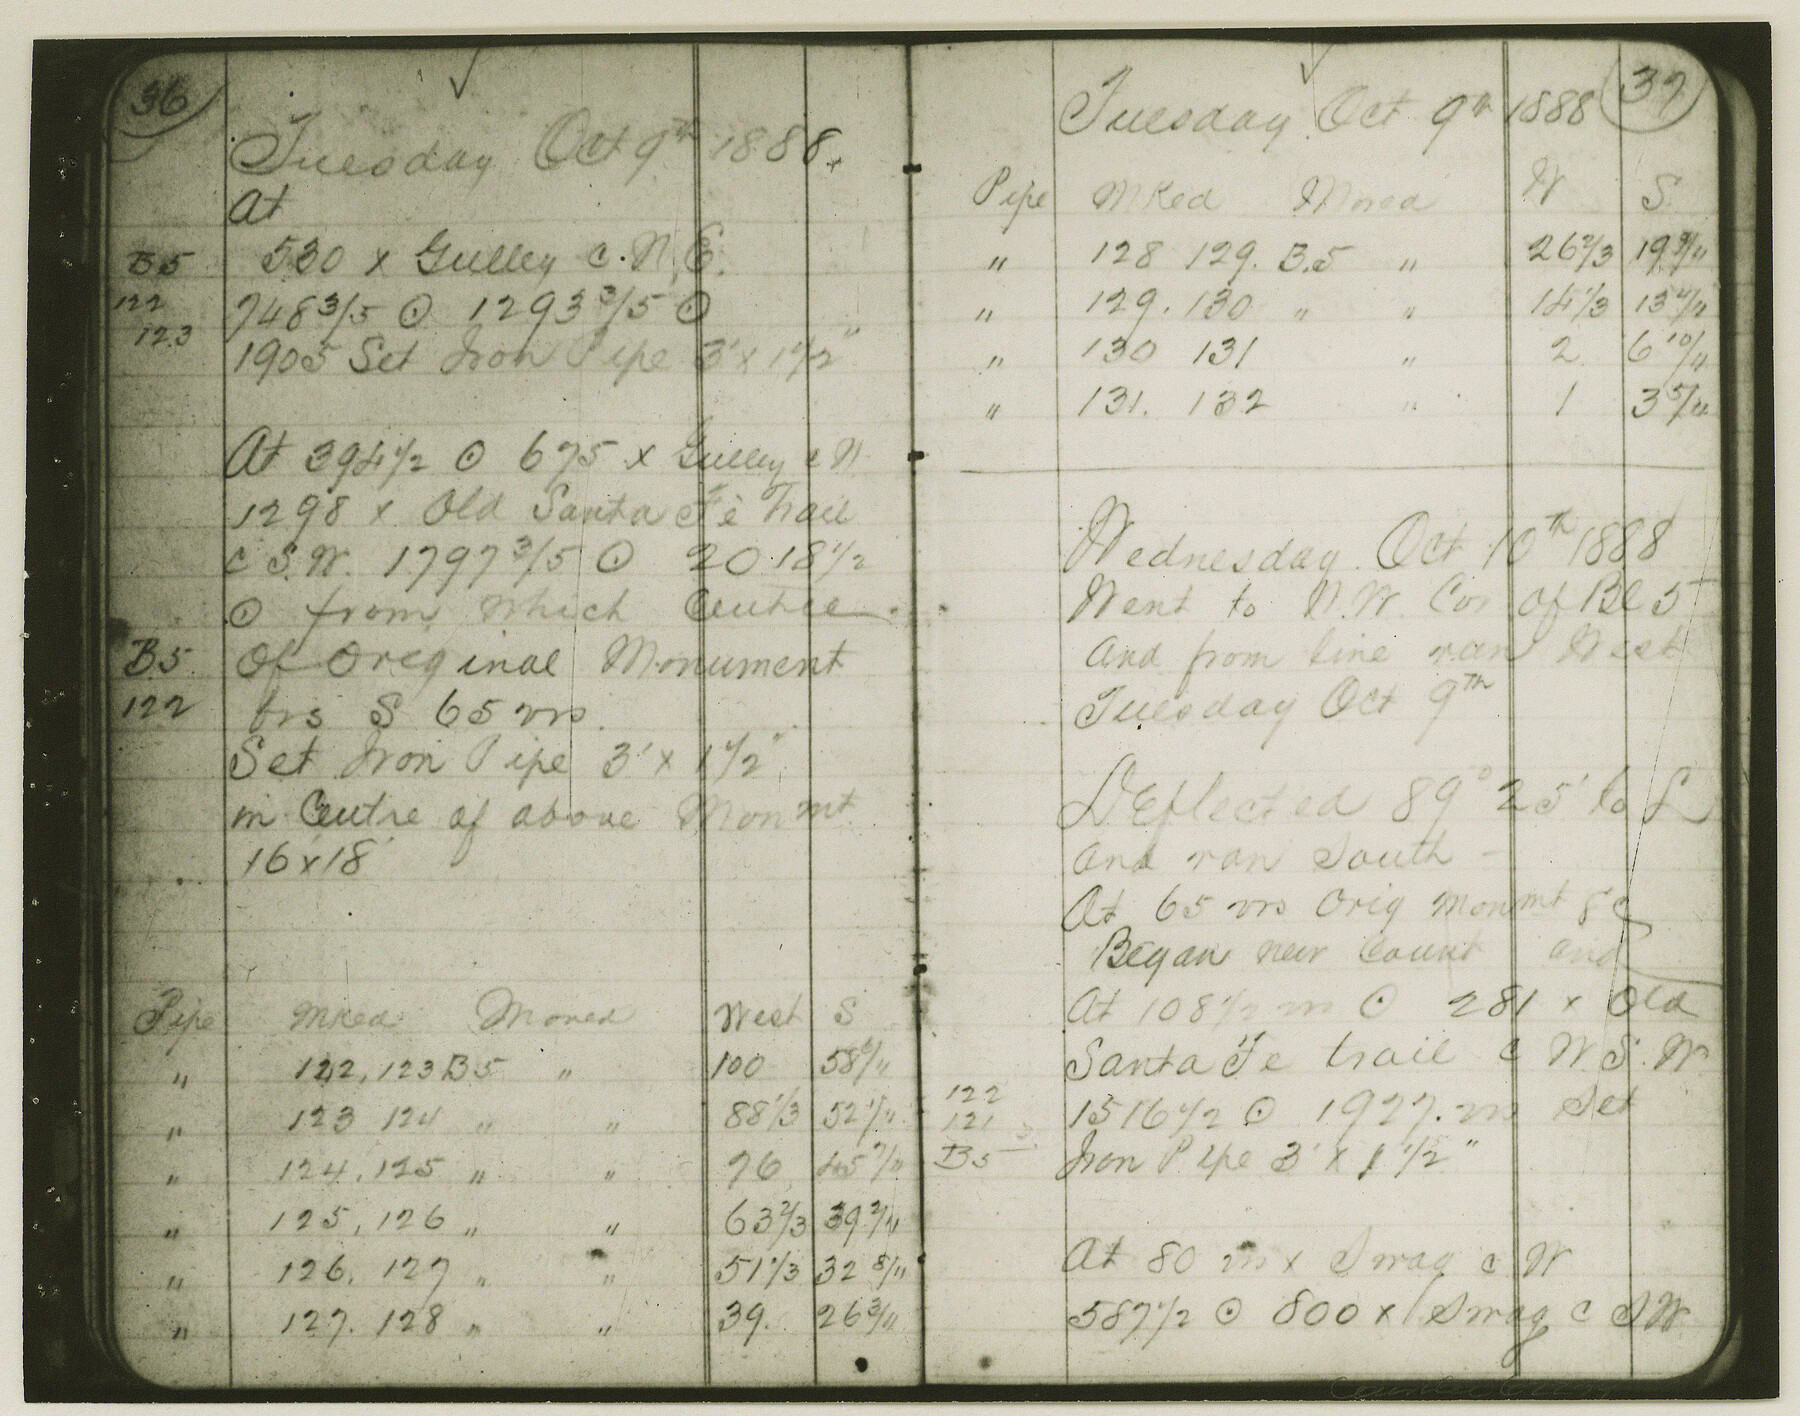 36
Tuesday Oct 9th 1888.
At
B5 530 x Gulley c. N.E.
122 748 3/5 ⊙ 1293 3/5 ⊙
123 1905 Set Iron Pipe 3' x 1 1/2"
At 394 1/2 ⊙ 675 x Gulley c N
1298 x Old Santa Fè Trail
c S.W. 1797 3/5 ⊙ 2018 1/2
⊙ from which Centre
B5 Of Original Monument
122 brs S 65 vrs.
Set Iron Pipe 3' x 1 1/2"
in Centre of above Monmt
16 x 18'
Pipe MKed Moved West S
" 122, 123 B5 " 100 58 /11
" 123 124 " " 88 1/3 52 1/11
" 124, 125 " " 76 45 7/11
" 125, 126 " " 63 2/3 39 2/11
" 126, 127 " " 51 1/3 32 8/11
" 127. 128 " " 39. 26 3/11
37
Tuesday Oct 9th 1888
Pipe MKed Moved W S
" 128 129. B.5 " 26 2/3 19 9/11
" 129. 130 " " 14 1/3 13 4/11
" 130 131 " 2 6 10/11
" 131. 132 " 1 3 5/11
Wednesday Oct 10th 1888
Went to N.W. Cor of Bl 5
and from line ran West
Tuesday Oct 9TH
Deflected 89° 25' to L
and ran South -
At 65 vrs Orig Monmt &c
Began new Count and
At 108 1/2 vrs ⊙ 281 x Old
Santa Fe trail c W.S.W.
122
121 1516 1/2 ⊙ 1927. vrs Set
B5 Iron Pipe 3' x 1 1/2"
At 80 vrs x Swag c W
587 1/2 ⊙ 800 x Swag c SW